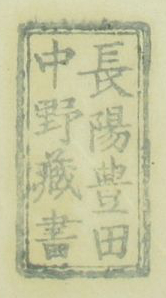 長陽豊田
中野藏書